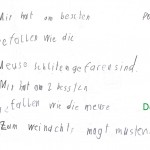 Mir hat am besten
gefallen wie die
Meuse schlitengefarensind.
Mir hat am 2 bessten
gefallen wie die meuse
Zum weinachts mogt musten.